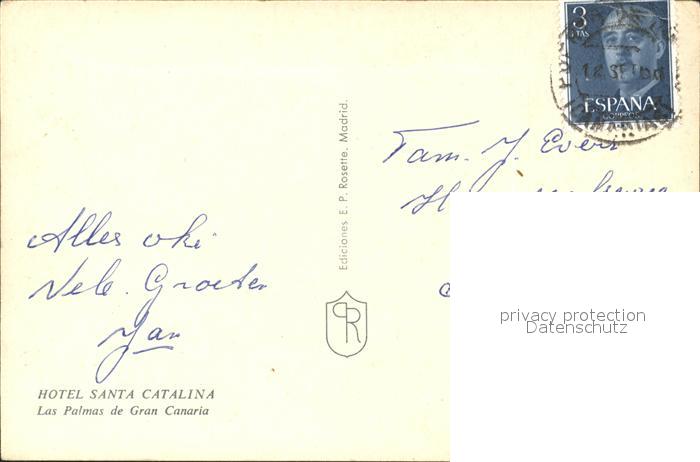 3
PTAS
ESPAÑA
CORREOS
Fam. J. Evers
Alles oké
Vele Groeten
Jan
Ediciones E. P. Rosette. Madrid.
PR
HOTEL SANTA CATALINA
Las Palmas de Gran Canaria
privacy protection
Datenschutz